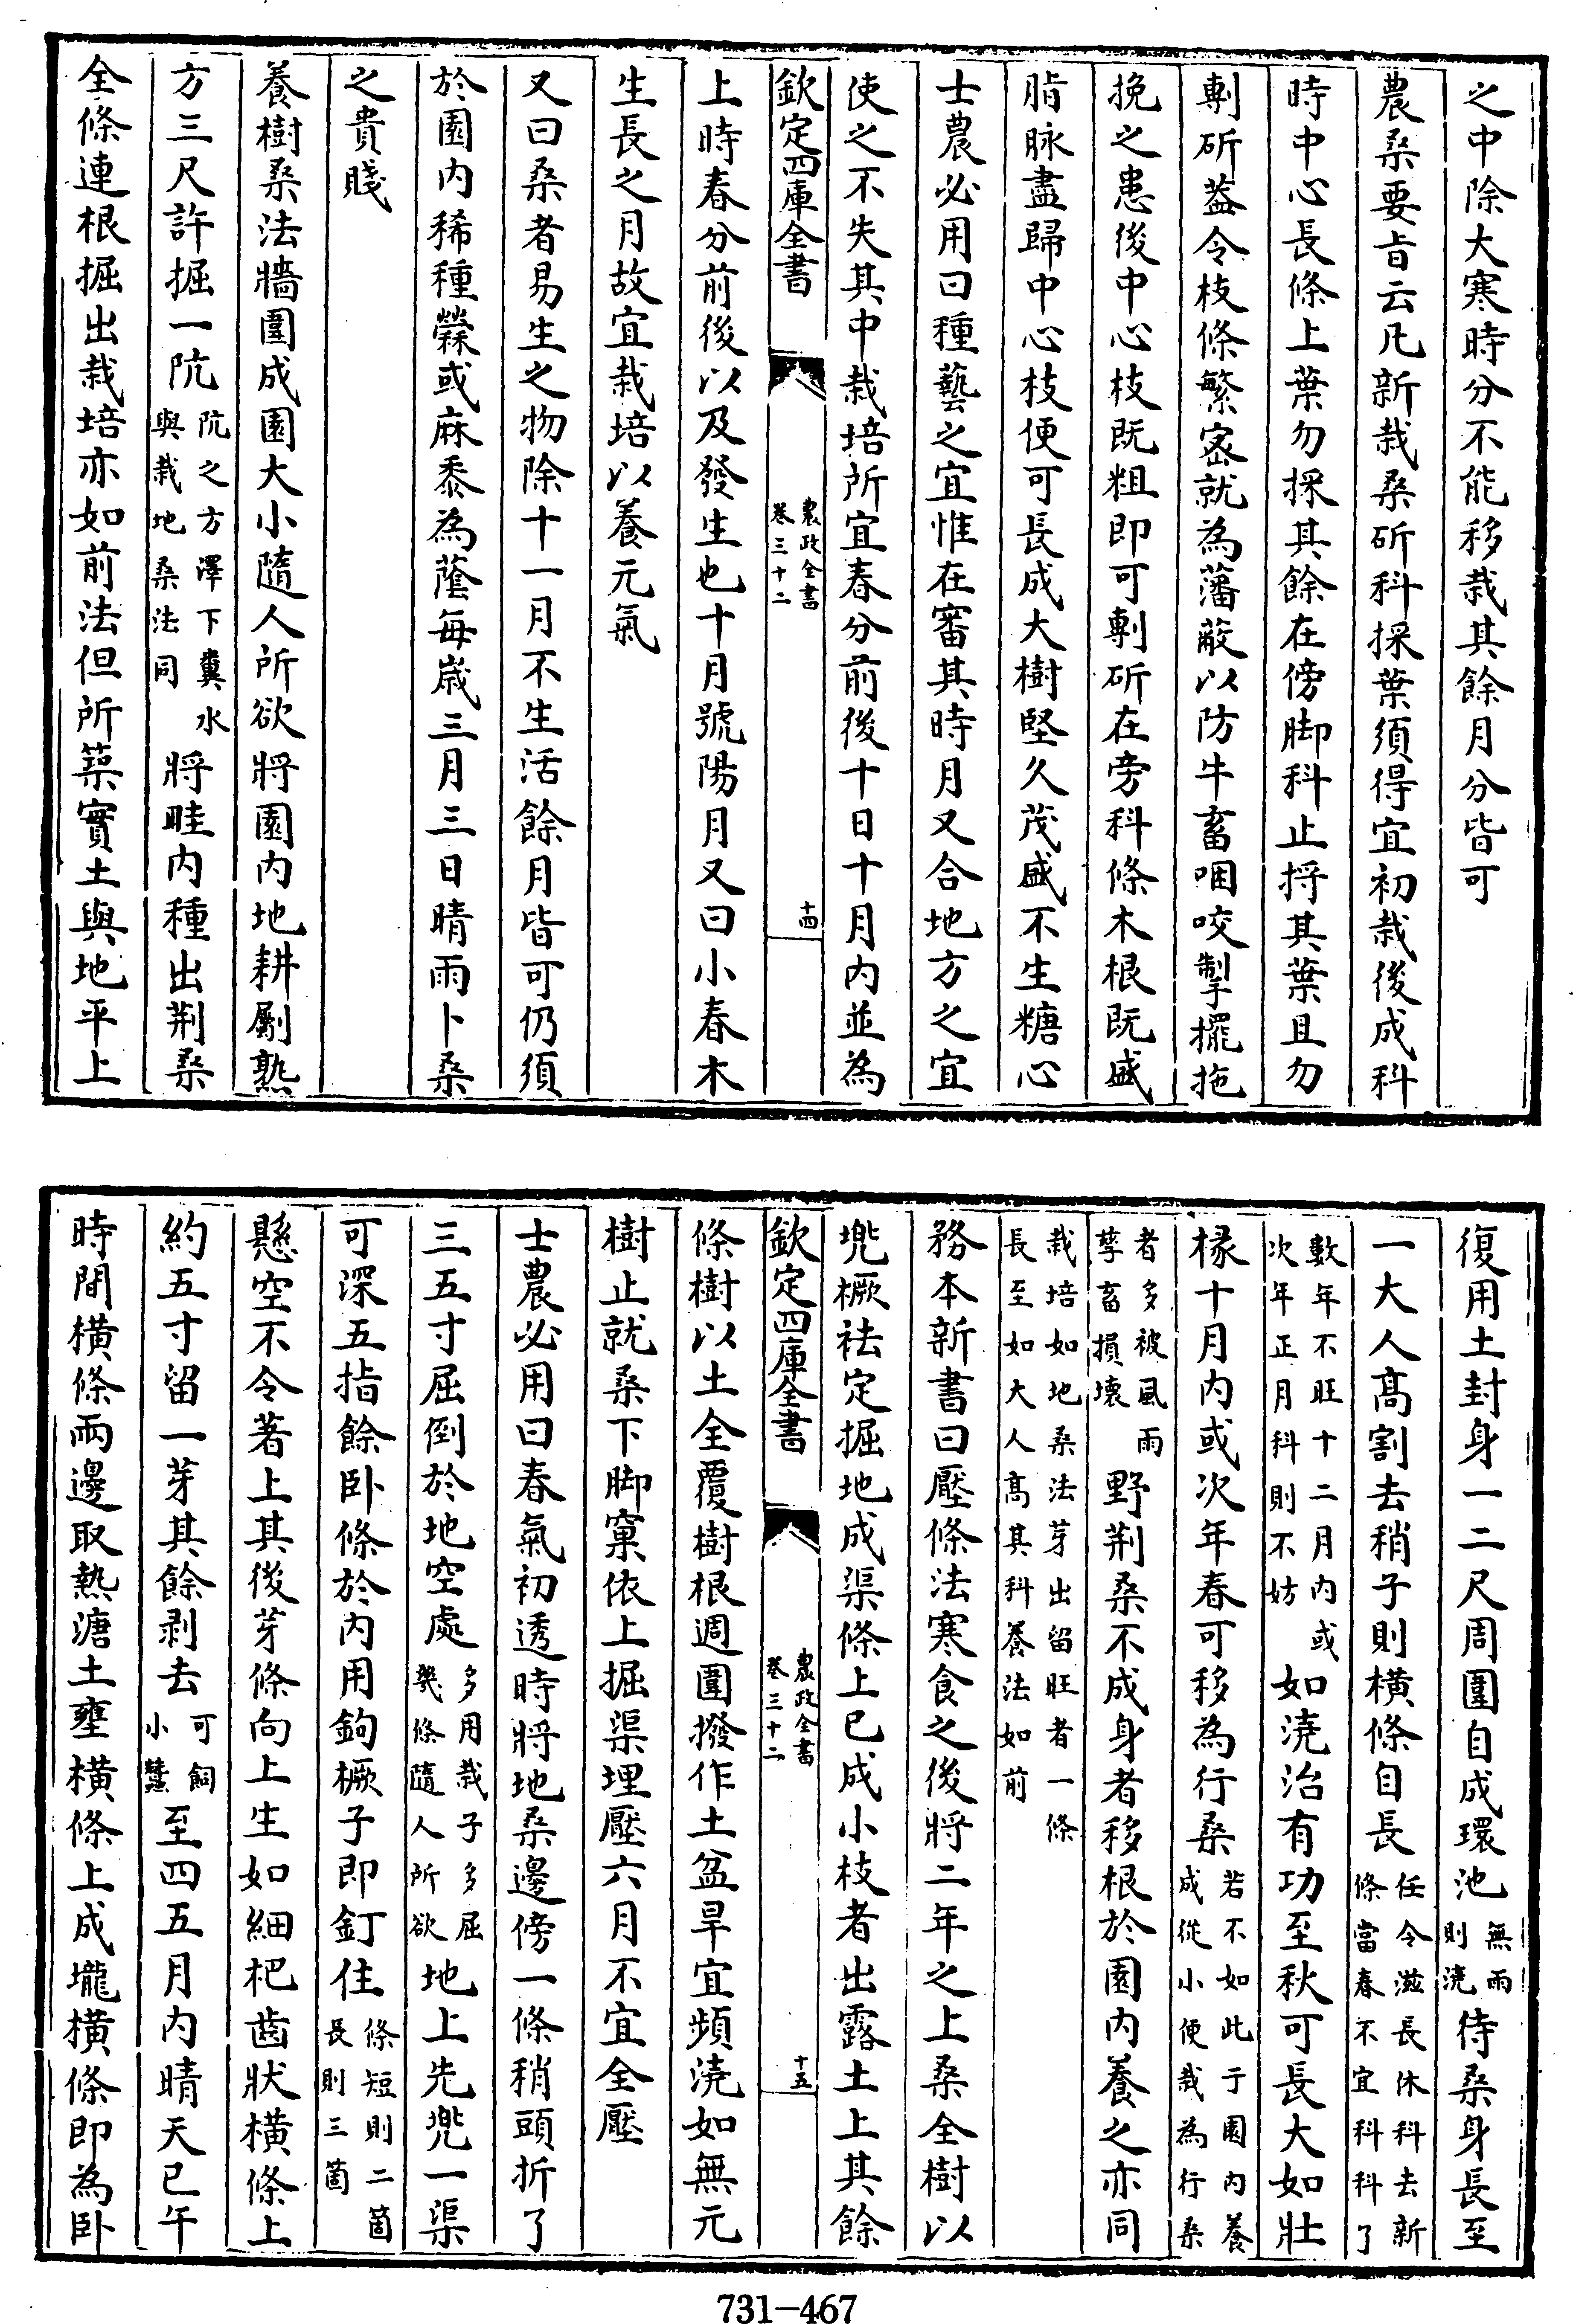 之中除大寒時分不能移栽其餘月分皆可
農桑要旨云凡新栽桑斫科採葉須得宜初栽後成科
時中心長條上葉勿採其餘在傍脚科止捋其葉且勿
剸斫葢令枝條繁宻就為藩蔽以防牛畜咽咬掣擺拖
挽之患後中心枝既粗即可剸斫在旁科條木根既盛
脂脉盡歸中心枝便可長成大樹堅久茂盛不生糖心
士農必用曰種藝之宜惟在審其時月又合地方之宜
使之不失其中栽培所宜春分前後十日十月内並為
欽定四庫全書
農政全書
卷三十二
十四
上時春分前後以及發生也十月號陽月又曰小春木
生長之月故宜栽培以養元氣
又曰桑者易生之物除十一月不生活餘月皆可仍須
於園内稀種䕞或麻黍為蔭每嵗三月三日晴雨卜桑
之貴賤
養樹桑法牆圍成園大小隨人所欲將園内地耕劚熟
方三尺許掘一阬阬之方澤下糞水
與栽地桑法同將畦内種出荆桑
全條連根掘出栽培亦如前法但所築實土與地平上
復用土封身一二尺周圍自成環池無雨
則澆待桑身長至
一大人髙割去稍子則橫條自長任令滋長休科去新
條當春不宜科科了
數年不旺十二月内或
次年正月科則不妨如澆治有功至秋可長大如壯
椽十月内或次年春可移為行桑若不如此于園内養
成從小便栽為行桑
者多被風雨
孳畜損壞野荆桑不成身者移根於園内養之亦同
栽培如地桑法芽出留旺者一條
長至如大人髙其科養法如前
務本新書曰壓條法寒食之後將二年之上桑全樹以
兠橛袪定掘地成渠條上已成小枝者出露土上其餘
欽定四庫全書
農政全書
卷三十二
十五
條樹以土全覆樹根週圍撥作土盆旱宜頻澆如無元
樹止就桑下脚窠依上掘渠埋壓六月不宜全壓
士農必用曰春氣初透時將地桑邊傍一條稍頭折了
三五寸屈倒於地空處多用栽子多屈
幾條隨人所欲地上先兠一渠
可深五指餘卧條於内用鉤橛子即釘住條短則二箇
長則三箇
懸空不令著上其後芽條向上生如細杷齒狀橫條上
約五寸留一芽其餘剥去可飼
小蠶至四五月内晴天已午
時間橫條兩邊取熱溏土壅橫條上成壠橫條即為卧